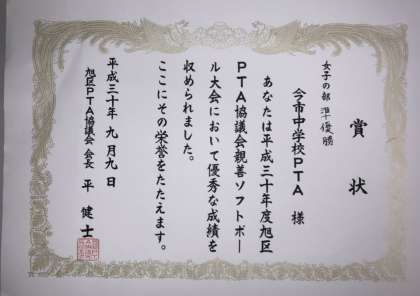 賞状
女子の部 準優勝
今市中学校PTA 様
あなたは平成三十年度旭区
PTA協議会親善ソフトボー
ル大会において優秀な成績を
収められました。
ここにその栄誉をたたえます。
平成三十年 九月九日
旭区PTA協議会 会長 平 健士